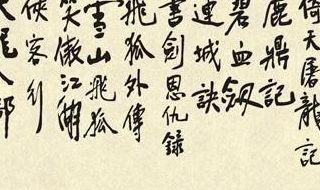 倚天屠龍記
鹿鼎記
碧血劍
連城訣
書劍恩仇錄
飛狐外傳
雪山飛狐
笑傲江湖
俠客行
八部